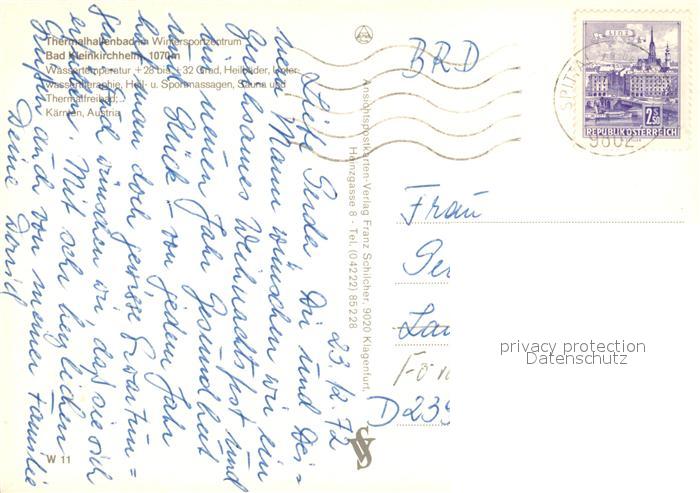 Thermalhallenbad im Wintersportzentrum
Bad Kleinkirchheim, 1070 m
Wassertemperatur +28 bis +32 Grad, Heilbäder, Unter-
wassertherapie, Heil- u. Sportmassagen, Sauna und
Thermalfreibad;
Kärnten, Austria
W 11
Ansichtspostkarten-Verlag Franz Schilcher, 9020 Klagenfurt,
Heinzgasse 8 - Tel. (04222) 85228
23.12.72
Liebe Gerda Dir und Dei-
nem Mann wünschen wir ein
Geruhsames Weihnachtsfest und
im neuen Jahr Gesundheit
und Glück - von jedem Jahr
hat man doch gewisse Erwartun=
gen und wünschen wir daß sie sich
erfüllen. Mit sehr herzlichen
Grüßen auch von meiner Familie
Deine
BRD
Frau
Ger
D 239
LINZ
2.50
REPUBLIK ÖSTERREICH
SPITTA
9802
privacy protection
Datenschutz